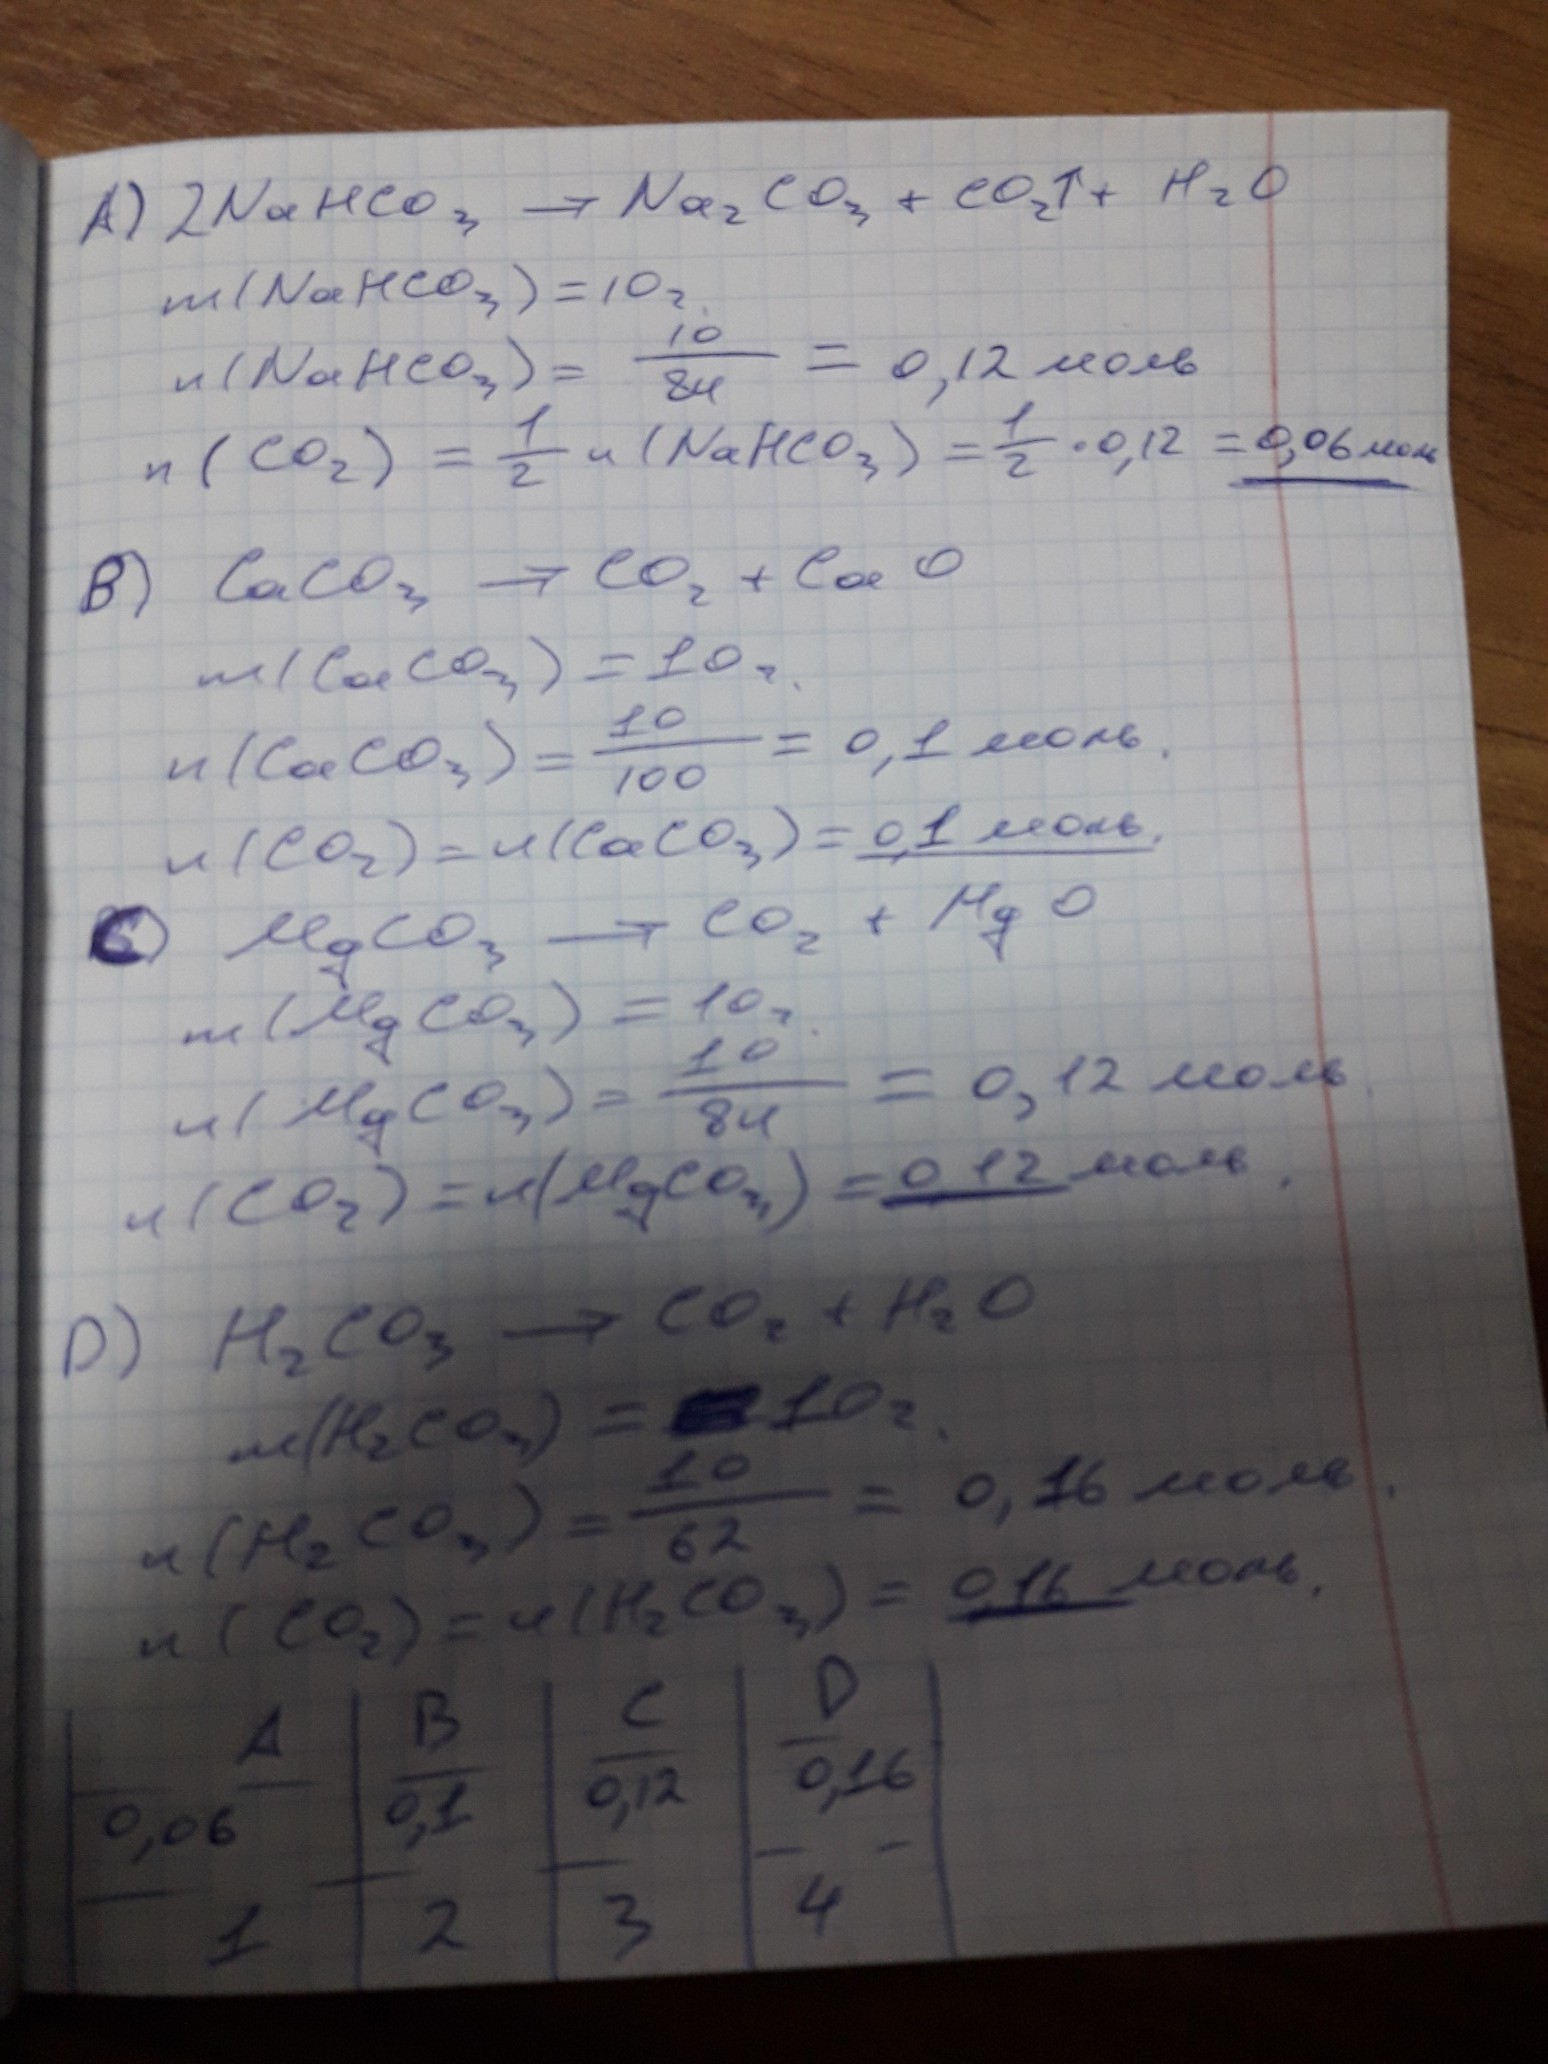 A) 2NaHCO₃ → Na₂CO₃ + CO₂↑ + H₂O
m(NaHCO₃) = 10г.
n(NaHCO₃) = 10/84 = 0,12 моль
n(CO₂) = 1/2 n(NaHCO₃) = 1/2 · 0,12 = 0,06 моль
B) CaCO₃ → CO₂ + CaO
m(CaCO₃) = 10г.
n(CaCO₃) = 10/100 = 0,1 моль.
n(CO₂) = n(CaCO₃) = 0,1 моль.
C) MgCO₃ → CO₂ + MgO
m(MgCO₃) = 10г.
n(MgCO₃) = 10/84 = 0,12 моль.
n(CO₂) = n(MgCO₃) = 0,12 моль.
D) H₂CO₃ → CO₂ + H₂O
m(H₂CO₃) = 10г.
n(H₂CO₃) = 10/62 = 0,16 моль.
n(CO₂) = n(H₂CO₃) = 0,16 моль.
A B C D
0,06 0,1 0,12 0,16
1 2 3 4